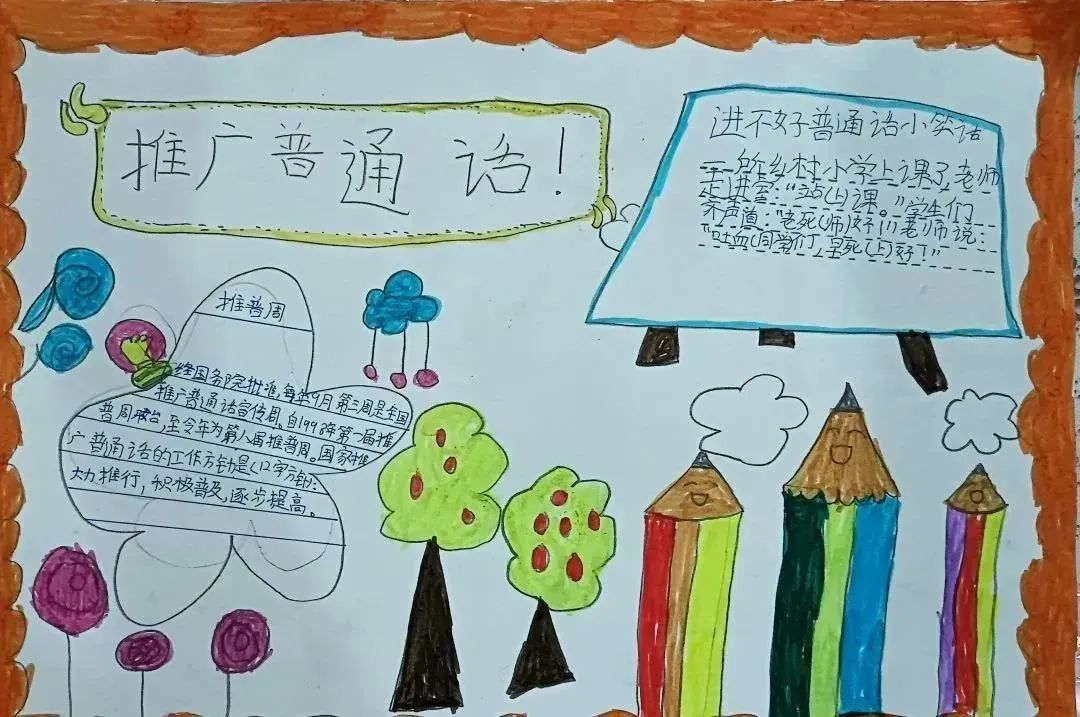 推广普通话！
进不好普通话小笑话
一个乡村小学上课了，老师
走进室："站(上)课。"学生们
齐声道："老死(师)好！"老师说：
"吐血(同学)们，早死(上)好！"
推普周
经国务院批准，每年9月第三周是全国
推广普通话宣传周。自1998年第一届推
普周 至今年为第八届推普周。国家推
广普通话的工作方针是(12字方针)：
大力推行，积极普及，逐步提高。